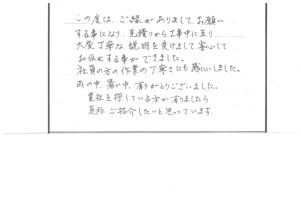 この度は、ご縁がありまして、お願い
する事になり、見積りから工事中に至り
大変丁寧な説明を受けまして安心して
お任せする事ができました。
社員の方の作業の丁寧さにも感心しました。
雨の中、暑い中、有りがとうございました。
業社を探している方が有りましたら
是非ご紹介したいと思っています。